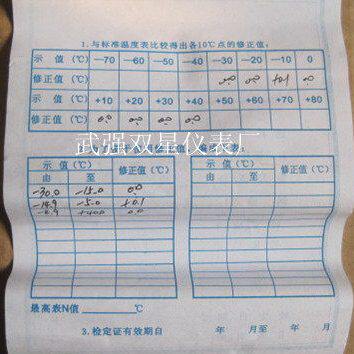 1.与标准温度表比较得出各10℃点的修正值:
示 值 (℃) —70 —60 —50 —40 —30 —20 —10 0
修正值 (℃) 0.0 0.0 +0.1 0.0
示 值 (℃) +10 +20 +30 +40 +50 +60 +70 +80
修正值 (℃) 0.0 0.0 0.0 0.0
武强双星仪表厂
示 值(℃) 修正值(℃) 示 值(℃) 修正值(℃)
由 至 由 至
-30.0 -15.0 0.0
-14.9 -5.0 +0.1
-4.9 +40.0 0.0
最高表N值 ℃
3.检定证有效期自 年 月至 年 月